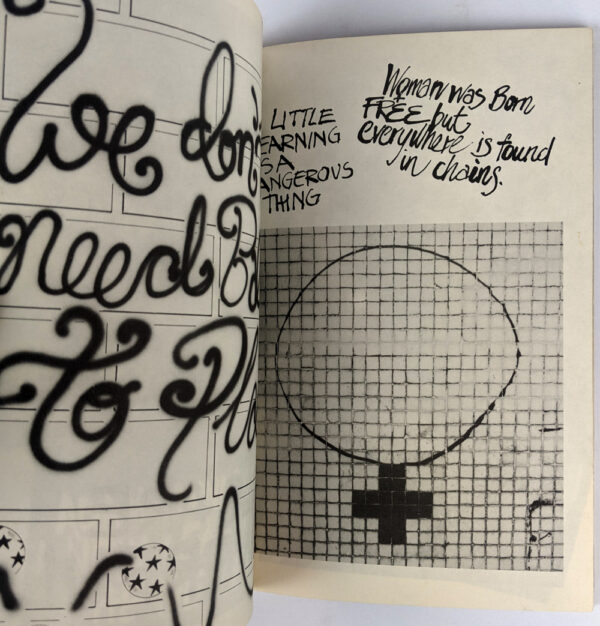 We don't
need
To
LITTLE
EARNING
IS A
ANGEROUS
THING
Woman was Born
FREE but
everywhere is found
in chains.